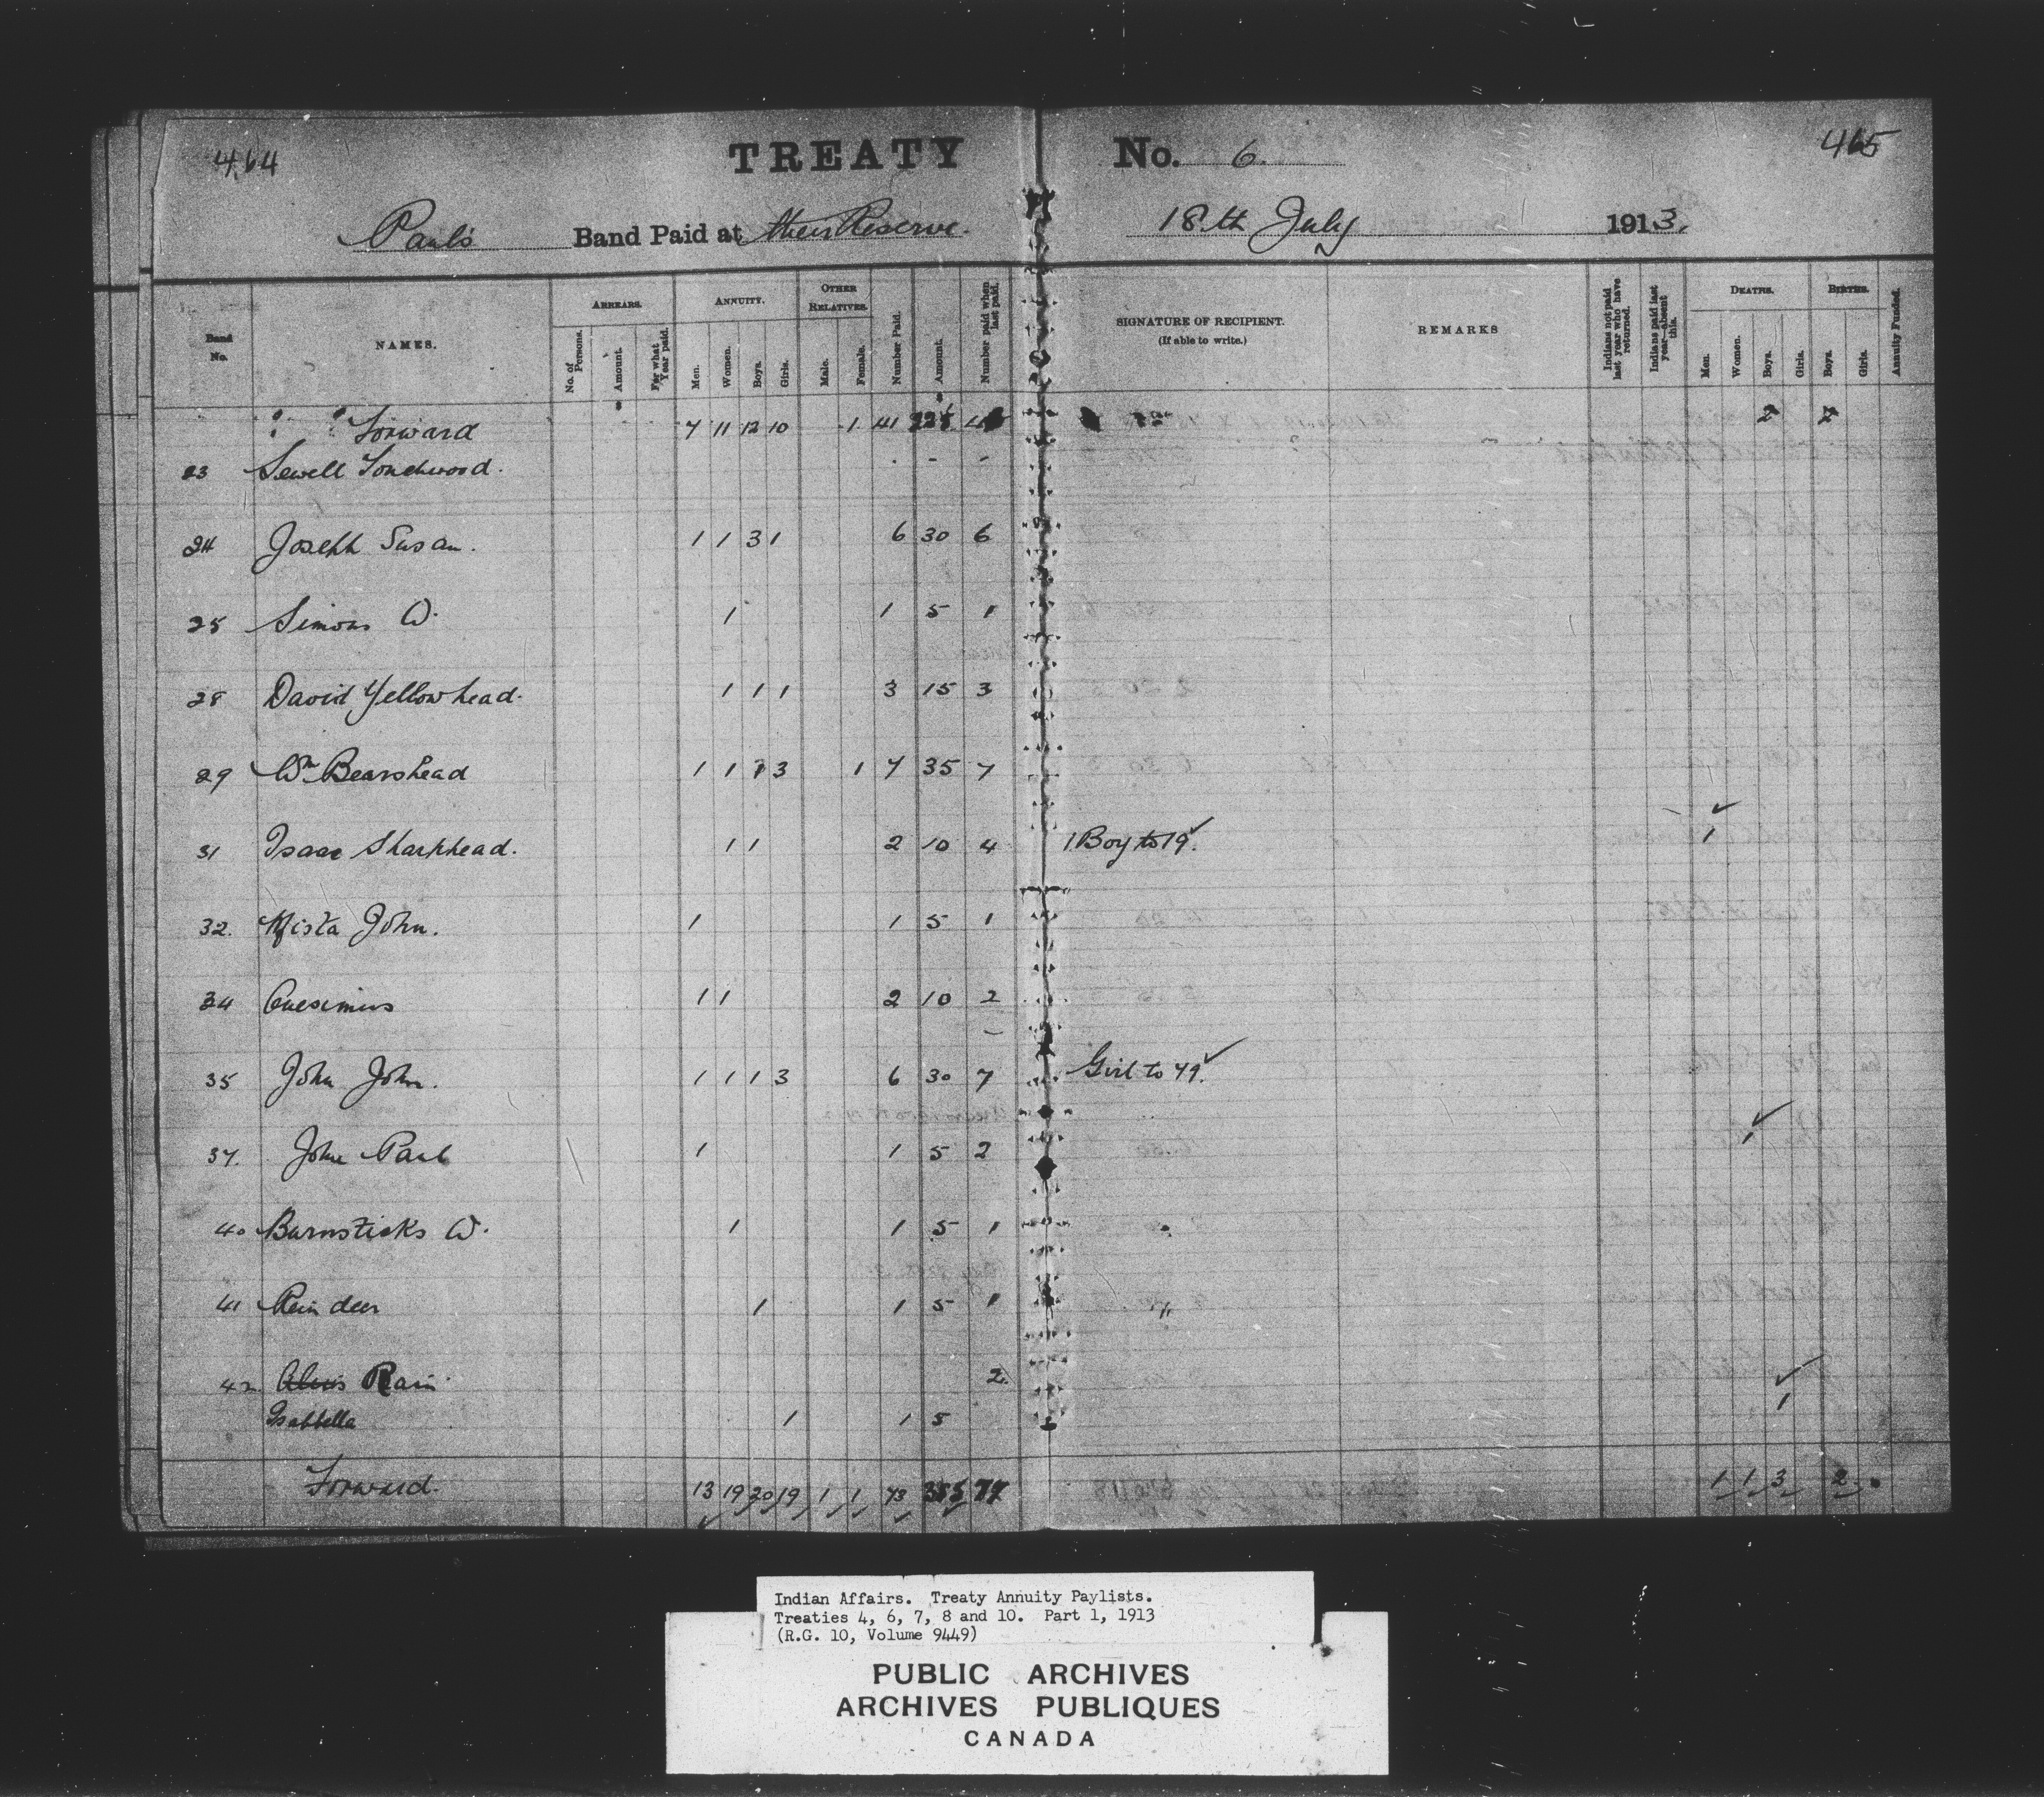 464 TREATY No. 6. 465
Paul's Band Paid at their Reserve. 18th July 1913.
Band No. NAMES. ARREARS. No. of Persons. Amount. For what Year paid. ANNUITY. Men. Women. Boys. Girls. OTHER RELATIVES. Male. Female. Number Paid. Amount. Number paid when last paid. SIGNATURE OF RECIPIENT. (If able to write.) REMARKS Indians not paid last year who have returned. Indians paid last year—absent this. DEATHS. Men. Women. Boys. Girls. BIRTHS. Boys. Girls. Annuity Funded.
" " Forward 7 11 12 10 1 41 2 2
23 Sewell Touchwood. - -
24 Joseph Susan. 1 1 3 1 6 30 6
25 Simon W. 1 1 5 1
28 David Yellowhead. 1 1 1 3 15 3
29 Wm Bearshead 1 1 1 3 1 7 35 7
31 Isaac Sharphead. 1 1 2 10 4 1 Boy to 19. 1
32. Mista John. 1 1 5 1
34 1 1 2 10 2
35 John John. 1 1 1 3 6 30 7 Girl to 49.
37. John Paul 1 1 5 2 1
40 Burnsticks W. 1 1 5 1
41 Rein deer 1 1 5 1
42 Alexis Rain 2. 1
Isabbella 1 1 5
Forward. 13 19 20 19 1 1 73 1 1 3 2
Indian Affairs. Treaty Annuity Paylists.
Treaties 4, 6, 7, 8 and 10. Part 1, 1913
(R.G. 10, Volume 9449)
PUBLIC ARCHIVES
ARCHIVES PUBLIQUES
CANADA